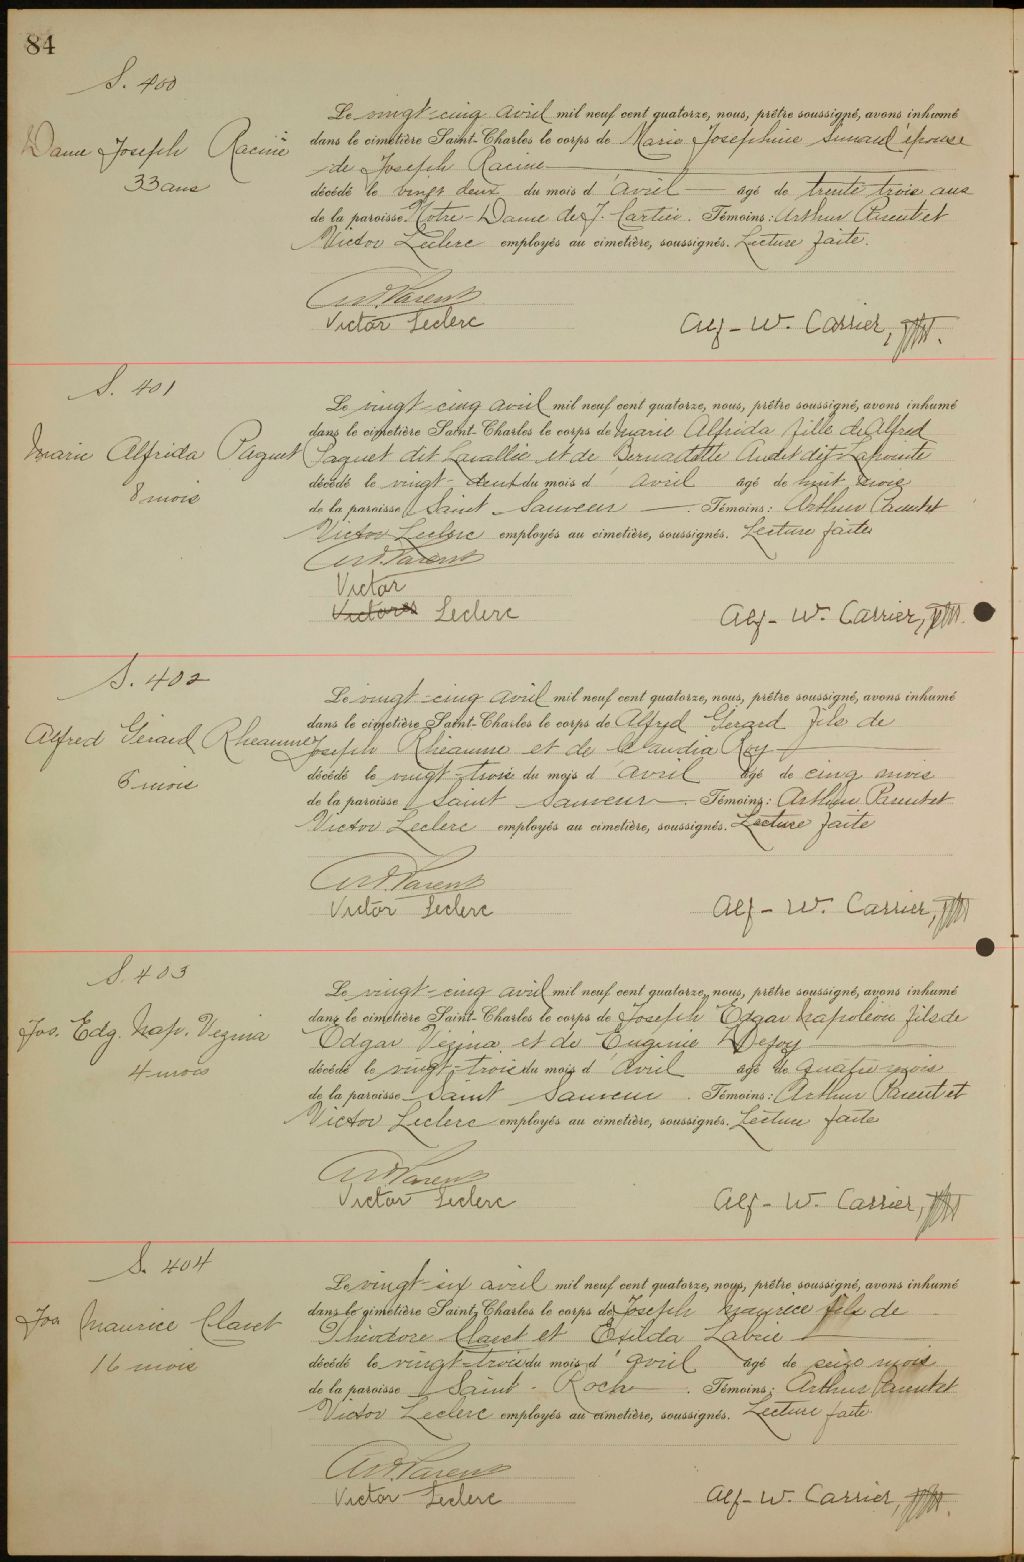 84
S. 400
Dame Joseph Racine
33 ans
Le vingt-cinq avril mil neuf cent quatorze, nous, prêtre soussigné, avons inhumé
dans le cimetière Saint-Charles le corps de Marie Josephine Simard épouse
de Joseph Racine
décédé le vingt deux du mois d'avril âgé de trente trois ans
de la paroisse Notre-Dame de J. Cartier. Témoins: Arthur Parent et
Victor Leclerc employés au cimetière, soussignés. Lecture faite.
Art. Parent
Victor Leclerc
Alf-W. Carrier, ptre.
S. 401
Marie Alfrida Paquet
8 mois
Le vingt-cinq avril mil neuf cent quatorze, nous, prêtre soussigné, avons inhumé
dans le cimetière Saint-Charles le corps de Marie Alfrida fille de Alfred
Paquet dit Lavallée et de Bernadette Audet dit Lapointe
décédé le vingt-deux du mois d'avril âgé de huit mois
de la paroisse Saint Sauveur. Témoins: Arthur Parent et
Victor Leclerc employés au cimetière, soussignés. Lecture faite
Art. Parent
Victor
Leclerc
Alf-W. Carrier, ptre.
S. 402
Alfred Gérard Rheaume
6 mois
Le vingt-cinq avril mil neuf cent quatorze, nous, prêtre soussigné, avons inhumé
dans le cimetière Saint-Charles le corps de Alfred Gérard fils de
Joseph Rhéaume et de Claudia Roy
décédé le vingt-trois du mois d'avril âgé de cinq mois
de la paroisse Saint Sauveur. Témoins: Arthur Parent et
Victor Leclerc employés au cimetière, soussignés. Lecture faite
Art. Parent
Victor Leclerc
Alf-W. Carrier, ptre
S. 403
Jos. Edg. Nap. Vezina
4 mois
Le vingt-cinq avril mil neuf cent quatorze, nous, prêtre soussigné, avons inhumé
dans le cimetière Saint-Charles le corps de Joseph Edgar Napoléon fils de
Edgar Vézina et de Eugénie Defoy
décédé le vingt-trois du mois d'avril âgé de quatre mois
de la paroisse Saint Sauveur. Témoins: Arthur Parent et
Victor Leclerc employés au cimetière, soussignés. Lecture faite
Art. Parent
Victor Leclerc
Alf-W. Carrier, ptre
S. 404
Jos Maurice Claret
16 mois
Le vingt-six avril mil neuf cent quatorze, nous, prêtre soussigné, avons inhumé
dans le cimetière Saint-Charles le corps de Joseph Maurice fils de
Théodore Claret et Exilda Lavoie
décédé le vingt-trois du mois d'avril âgé de seize mois
de la paroisse Saint-Roch. Témoins: Arthur Parent et
Victor Leclerc employés au cimetière, soussignés. Lecture faite.
Art. Parent
Victor Leclerc
Alf-W. Carrier, ptre.